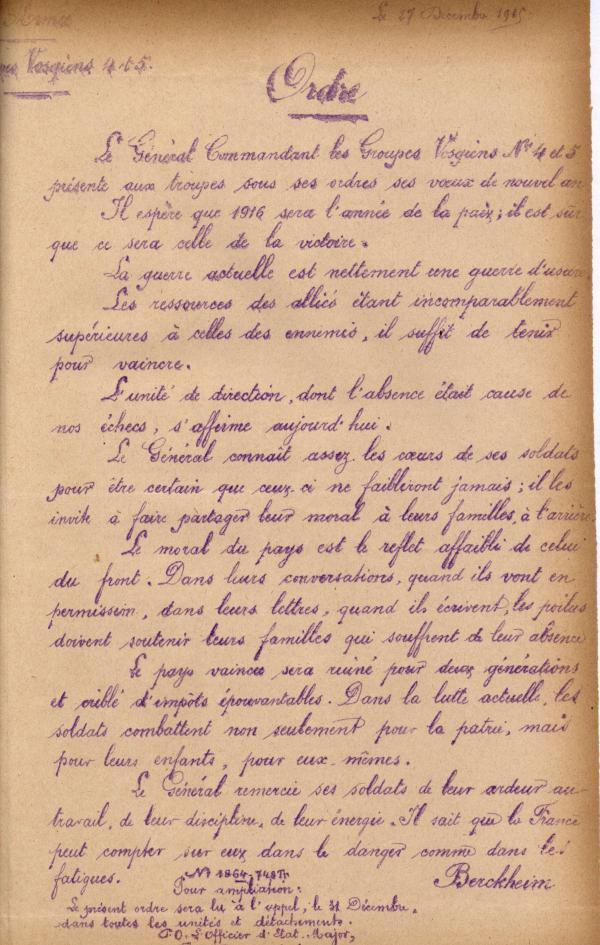 Le 27 Décembre 1915
Armée
Vosgiens 4 et 5.
Ordre
Le Général Commandant les Groupes Vosgiens Nos 4 et 5
présente aux troupes sous ses ordres ses vœux de nouvel an
Il espère que 1916 sera l'année de la paix ; il est sûr
que ce sera celle de la victoire.
La guerre actuelle est nettement une guerre d'usure
Les ressources des alliés étant incomparablement
supérieures à celles des ennemis, il suffit de tenir
pour vaincre.
L'unité de direction, dont l'absence était cause de
nos échecs, s'affirme aujourd'hui.
Le Général connaît assez les cœurs de ses soldats
pour être certain que ceux-ci ne faibliront jamais ; il les
invite à faire partager leur moral à leurs familles, à l'arrière.
Le moral du pays est le reflet affaibli de celui
du front. Dans leurs conversations, quand ils vont en
permission, dans leurs lettres, quand ils écrivent, les poilus
doivent soutenir leurs familles qui souffrent de leur absence
Le pays vaincu sera ruiné pour deux générations
et criblé d'impôts épouvantables. Dans la lutte actuelle, les
soldats combattent non seulement pour la patrie, mais
pour leurs enfants, pour eux-mêmes.
Le Général remercie ses soldats de leur ardeur au
travail, de leur discipline, de leur énergie. Il sait que la France
peut compter sur eux dans le danger comme dans les
fatigues.
Berckheim
No 1864
Pour ampliation :
Le présent ordre sera lu à l'appel, le 31 Décembre,
dans toutes les unités et détachements.
P.O. L'Officier d'Etat-Major,